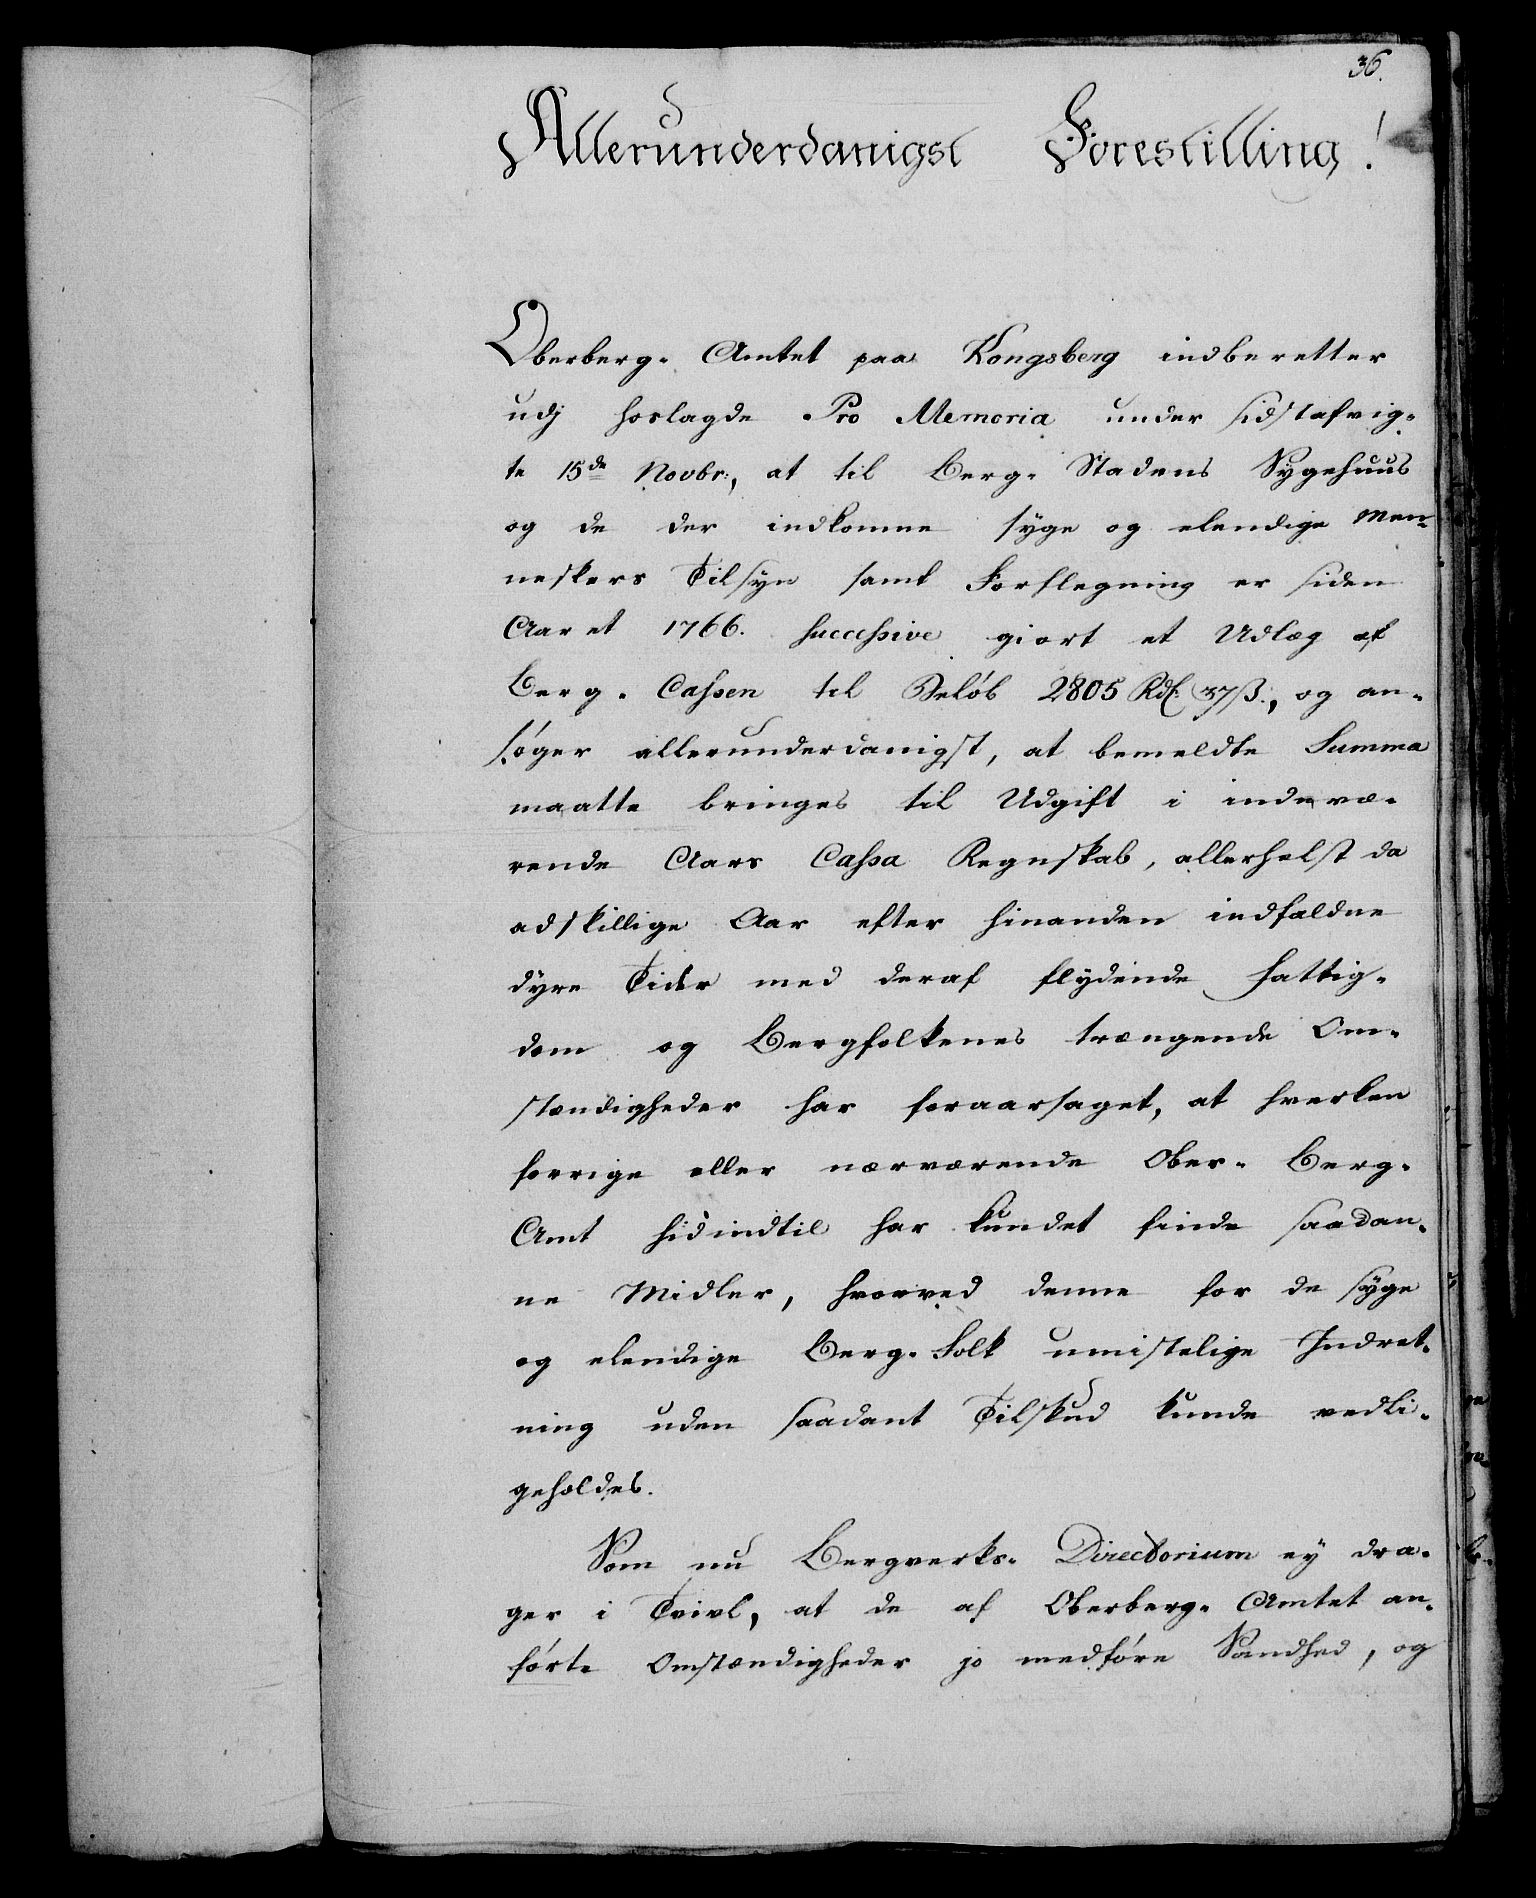 36.
Allerunderdanigst Forestilling!
Oberberg- Amtet paa Kongsberg indberetter
udj hoslagde Pro Memoria under sidstafvig-
te 15de Novbr:, at til Berg- Stadens Sygehuus
og de der indkomne syge og elendige Men-
neskers Tilsyn samt Forflegning er siden
Aaret 1766. successive giort et Udlæg af
Berg- Cassen til Beløb 2805 Rdl: 37 ß., og an-
søger allerunderdanigst, at bemeldte Summa
maatte bringes til Udgift i indevæ-
rende Aars Cassa Regnskab, allerhelst da
adskillige Aar efter hinanden indfaldne
dyre Tider med deraf flydende Fattig-
dom og Bergfolkenes trængende Om-
stændigheder har foraarsaget, at hverken
forrige eller nærværende Ober- Berg-
Amt hidindtil har kundet finde saadan-
ne Midler, hvorved denne for de syge
og elendige Berg- Folk umistelige Indret-
ning uden saadant Tilskud kunde vedli-
geholdes.
Som nu Bergverks- Directorium ey dra-
ger i Tvivl, at de af Oberberg- Amtet an-
førte Omstændigheder jo medføre Sandhed, og